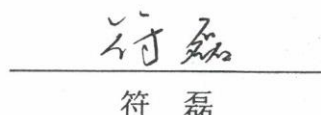 符磊
符 磊